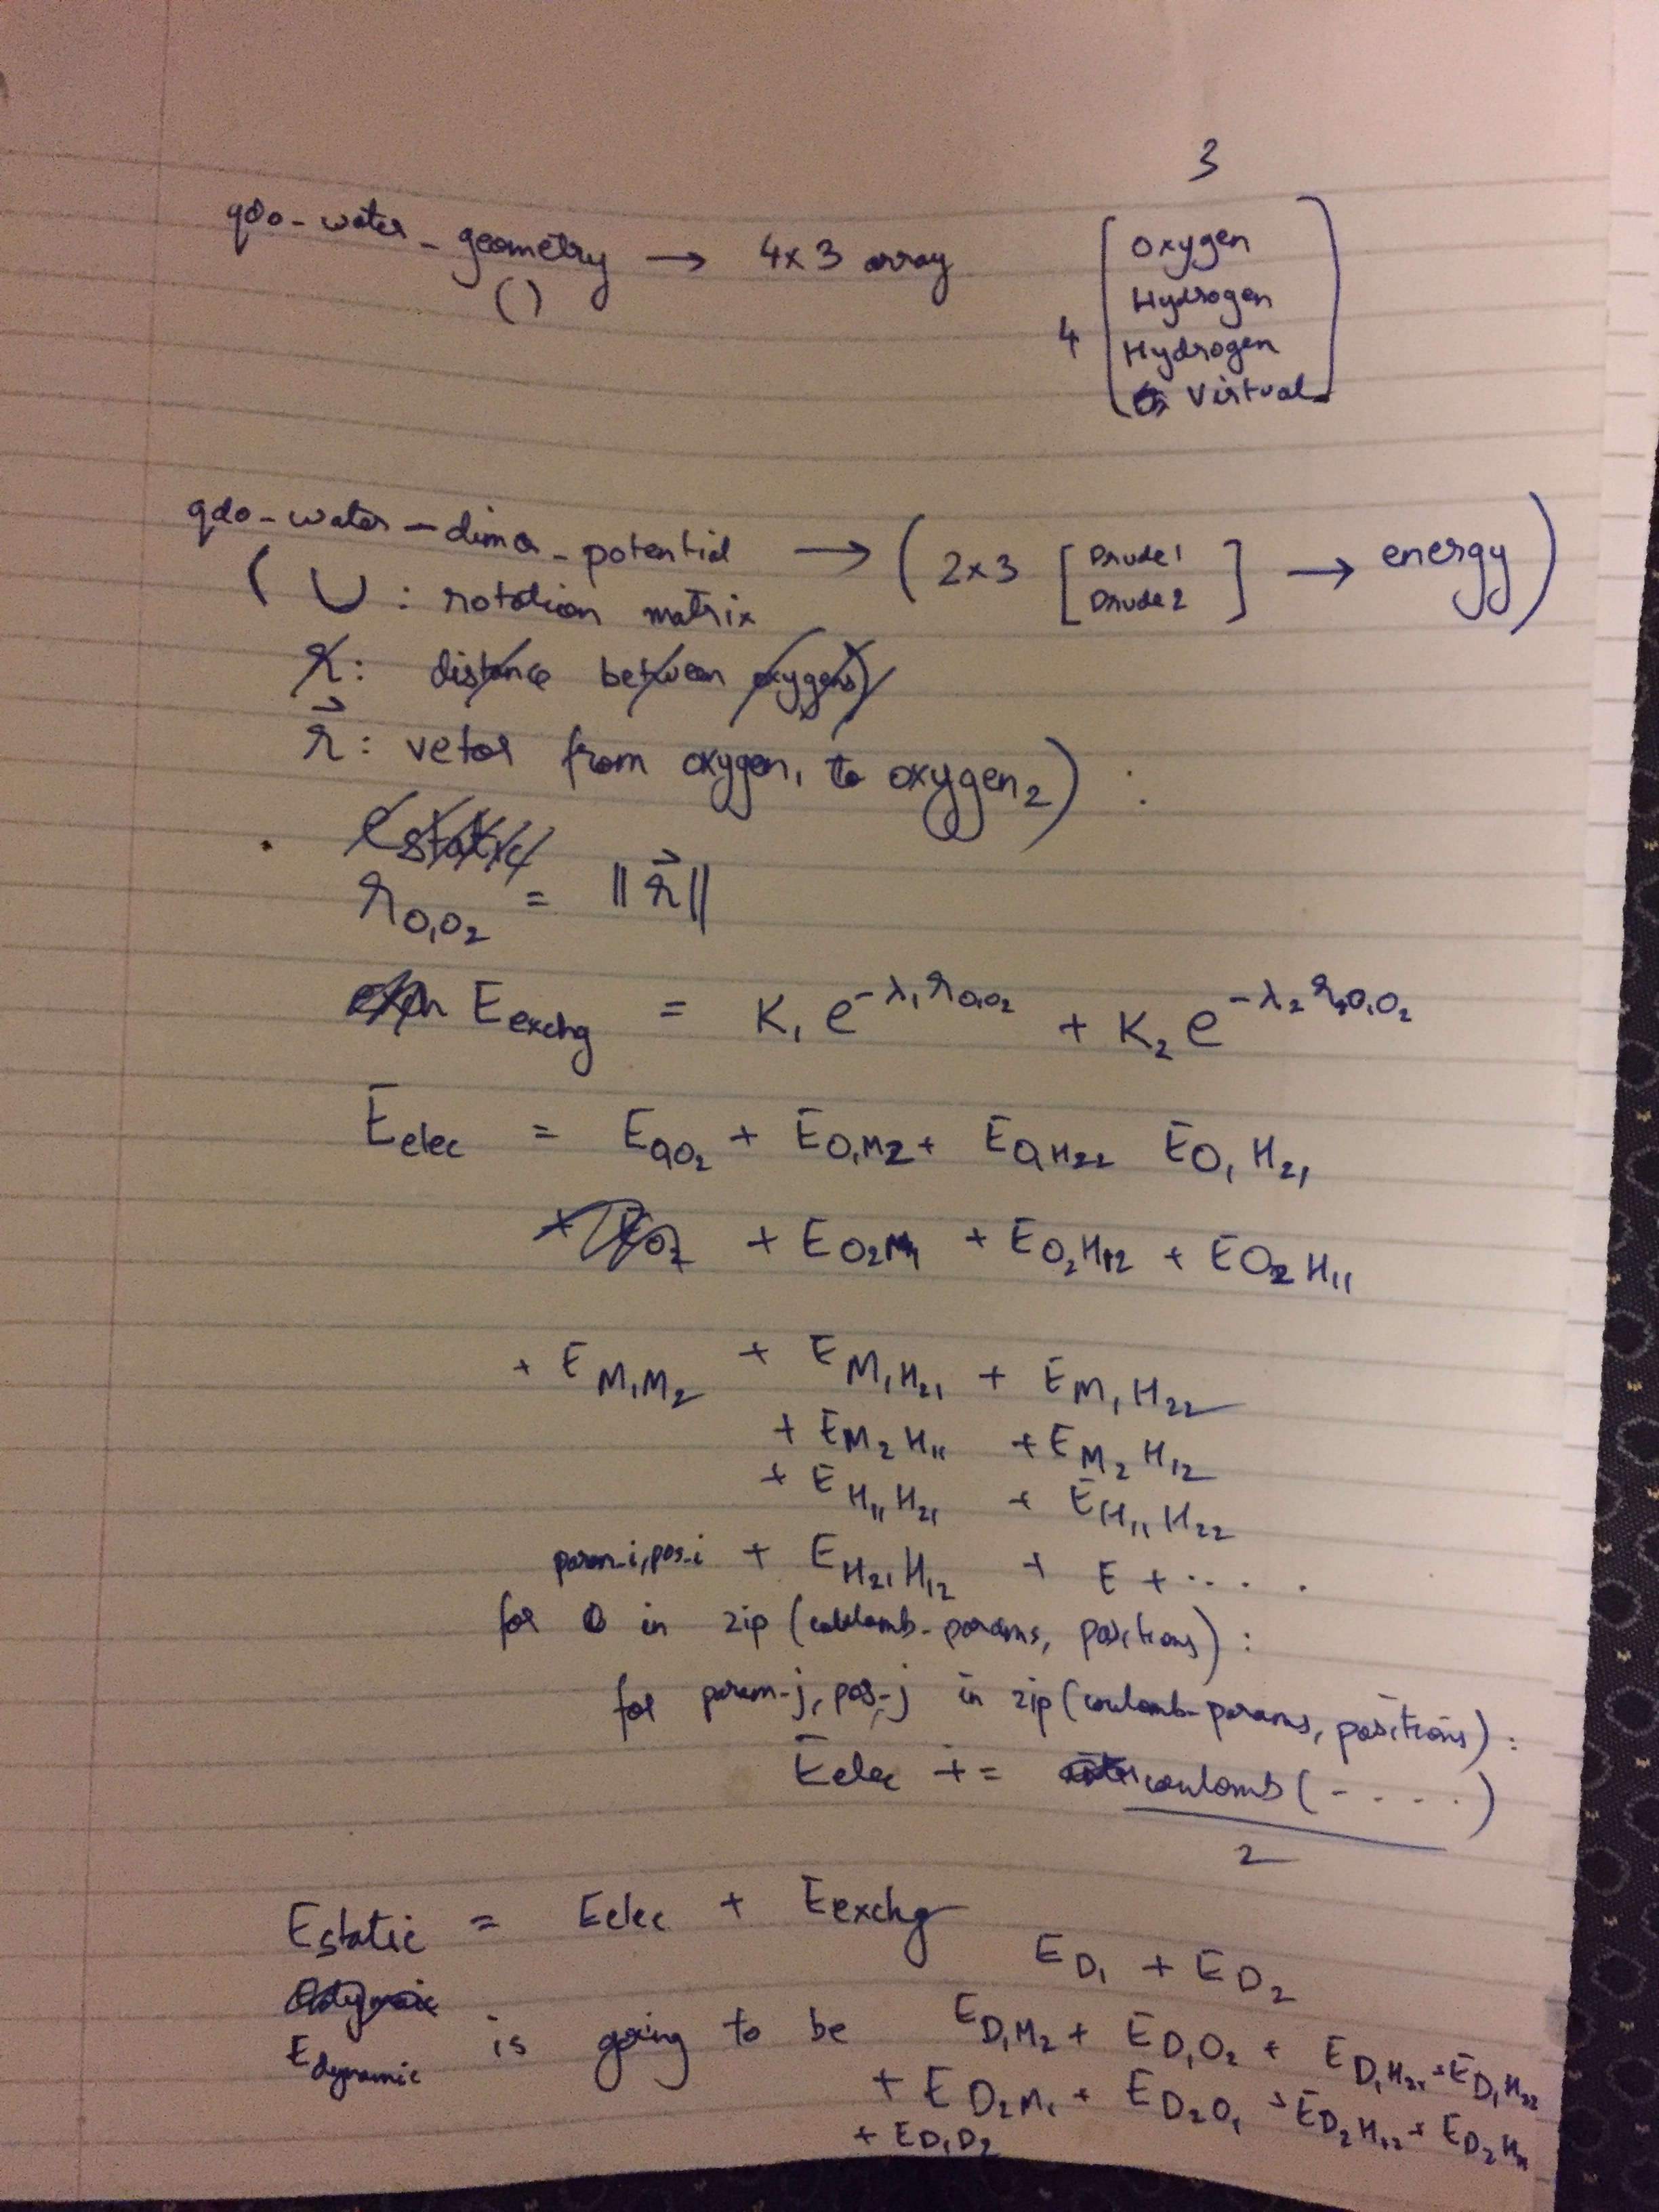 3
qdo-water-geometry → 4x3 array
()
4 [ Oxygen
Hydrogen
Hydrogen
Virtual ]
qdo-water-dimer-potential → ( 2x3 [ Drude1
Drude2 ] → energy )
( U : rotation matrix
r: distance between oxygens)
r⃗ : vetor from oxygen₁ to oxygen₂ ) :
Estatic
r_O₁O₂ = ||r⃗||
E_exchg = K₁ e^-λ₁ r_O₁O₂ + K₂ e^-λ₂ r_O₁O₂
E_elec = E_O₁O₂ + E_O₁M₂ + E_O₁H₂₂ E_O₁H₂₁
+ E_O₂M₁ + E_O₂H₁₂ + E_O₂H₁₁
+ E_M₁M₂ + E_M₁H₂₁ + E_M₁H₂₂
+ E_M₂H₁₁ + E_M₂H₁₂
+ E_H₁₁H₂₁ + E_H₁₁H₂₂
param-i, pos-i + E_H₂₁H₁₂ + E + ....
for in zip (coulomb-params, positions) :
for param-j, pos-j in zip (coulomb-params, positions) :
E_elec += coulomb( - . . . . )
2
E_static = E_elec + E_exchg
E_D₁ + E_D₂
E_dynamic is going to be E_D₁M₂ + E_D₁O₂ + E_D₁H₂₁ + E_D₁H₂₂
+ E_D₂M₁ + E_D₂O₁ + E_D₂H₁₂ + E_D₂H₁₁
+ E_D₁D₂